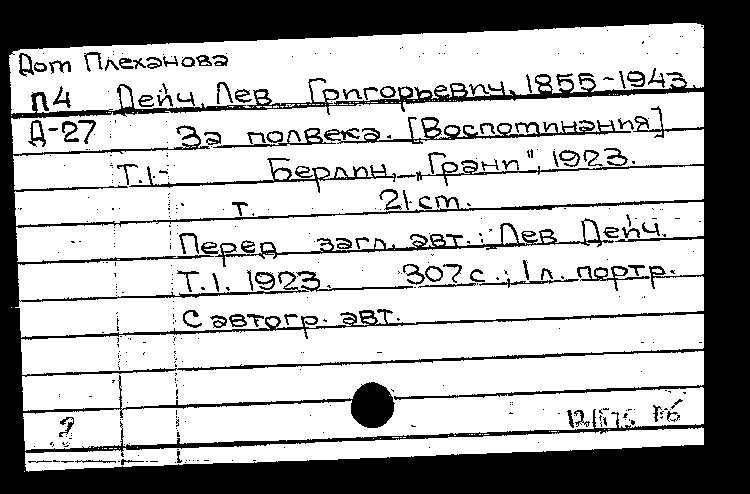 Дом Плеханова
П4 Дейч, Лев Григорьевич, 1855-1943.
Д-27 За полвека. [Воспоминания]
Т.1- Берлин, "Грани", 1923.
т. 21 см.
Перед загл. авт.: Лев Дейч.
Т.1. 1923. 307 с.; 1 л. портр.
С автогр. авт.